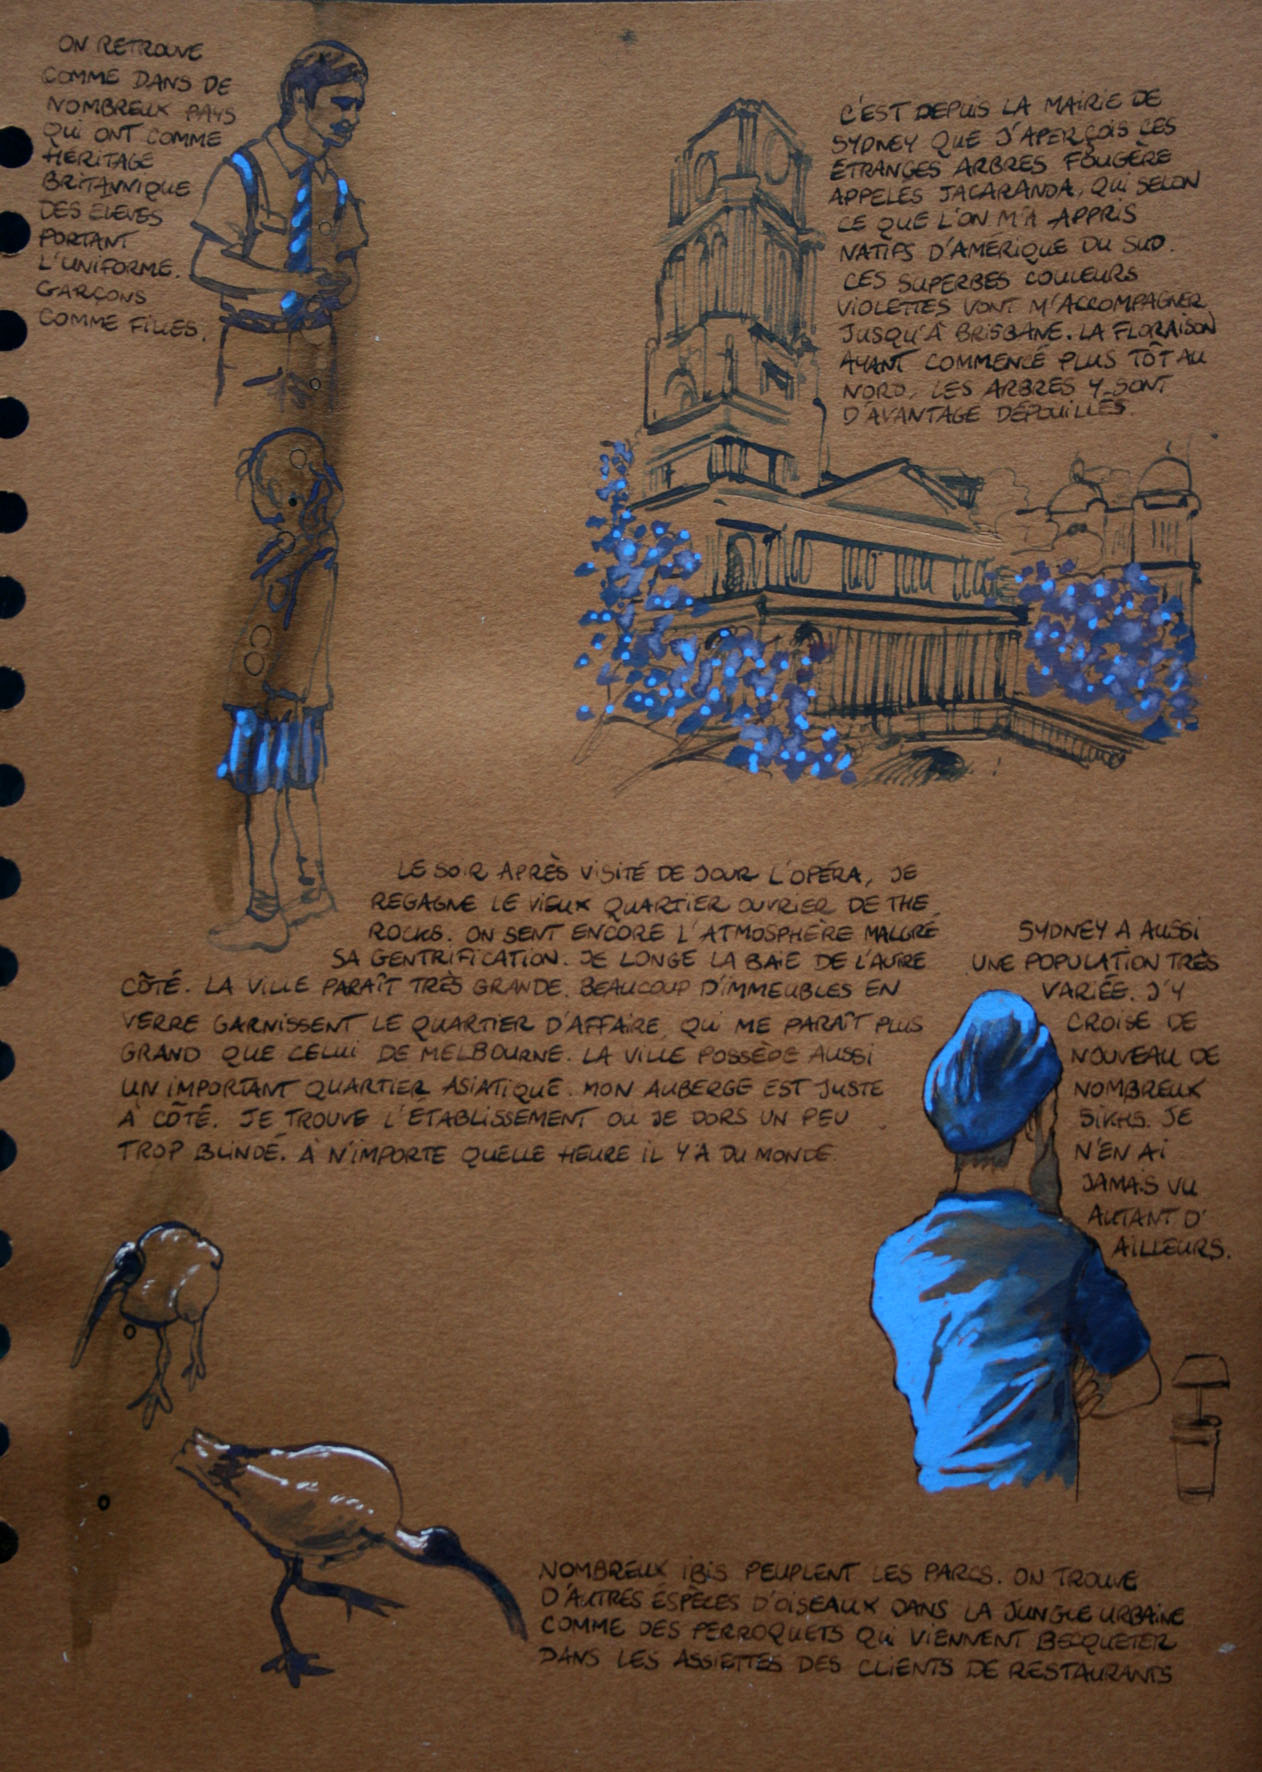 ON RETROUVE
COMME DANS DE
NOMBREUX PAYS
QUI ONT COMME
HÉRITAGE
BRITANNIQUE
DES ELEVES
PORTANT
L'UNIFORME.
GARÇONS
COMME FILLES.
C'EST DEPUIS LA MAIRIE DE
SYDNEY QUE J'APERÇOIS CES
ÉTRANGES ARBRES FOUGÈRE
APPELÉS JACARANDA, QUI SELON
CE QUE L'ON M'A APPRIS
NATIFS D'AMÉRIQUE DU SUD.
CES SUPERBES COULEURS
VIOLETTES VONT M'ACCOMPAGNER
JUSQU'À BRISBANE. LA FLORAISON
AYANT COMMENCÉ PLUS TÔT AU
NORD, LES ARBRES Y SONT
D'AVANTAGE DÉPOUILLÉS.
LE SOIR APRÈS VISITÉ DE JOUR L'OPÉRA, JE
REGAGNE LE VIEUX QUARTIER OUVRIER DE THE
ROCKS. ON SENT ENCORE L'ATMOSPHÈRE MALGRÉ
SA GENTRIFICATION. JE LONGE LA BAIE DE L'AUTRE
CÔTÉ. LA VILLE PARAÎT TRÈS GRANDE. BEAUCOUP D'IMMEUBLES EN
VERRE GARNISSENT LE QUARTIER D'AFFAIRE, QUI ME PARAÎT PLUS
GRAND QUE CELUI DE MELBOURNE. LA VILLE POSSÈDE AUSSI
UN IMPORTANT QUARTIER ASIATIQUE. MON AUBERGE EST JUSTE
À CÔTÉ. JE TROUVE L'ETABLISSEMENT OU JE DORS UN PEU
TROP BLINDÉ. À N'IMPORTE QUELLE HEURE IL Y'A DU MONDE.
SYDNEY A AUSSI
UNE POPULATION TRÈS
VARIÉE. J'Y
CROISE DE
NOUVEAU DE
NOMBREUX
SIKHS. JE
N'EN AI
JAMAIS VU
AUTANT D'
AILLEURS.
NOMBREUX IBIS PEUPLENT LES PARCS. ON TROUVE
D'AUTRES ÉSPÈCES D'OISEAUX DANS LA JUNGLE URBAINE
COMME DES PERROQUETS QUI VIENNENT BECQUETER
DANS LES ASSIETTES DES CLIENTS DE RESTAURANTS